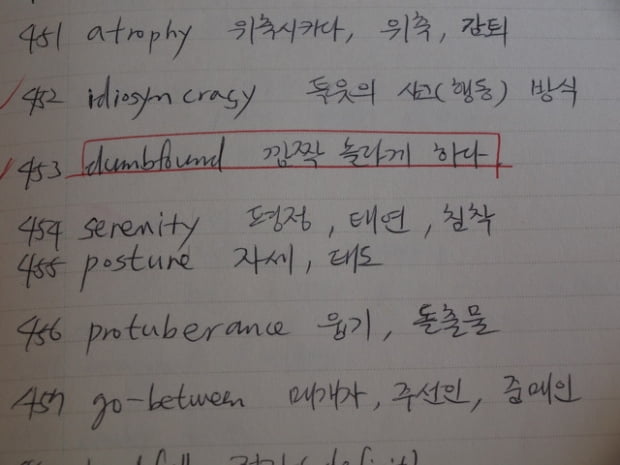 451 atrophy 위축시키다, 위축, 감퇴
452 idiosyncrasy 특유의 사고(행동) 방식
453 dumbfound 깜짝 놀라게 하다
454 serenity 평정, 태연, 침착
455 posture 자세, 태도
456 protuberance 융기, 돌출물
457 go-between 매개자, 주선인, 중매인